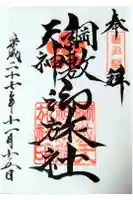 奉拝
綱敷天神
御旅社
平成二十七年十一月十六日